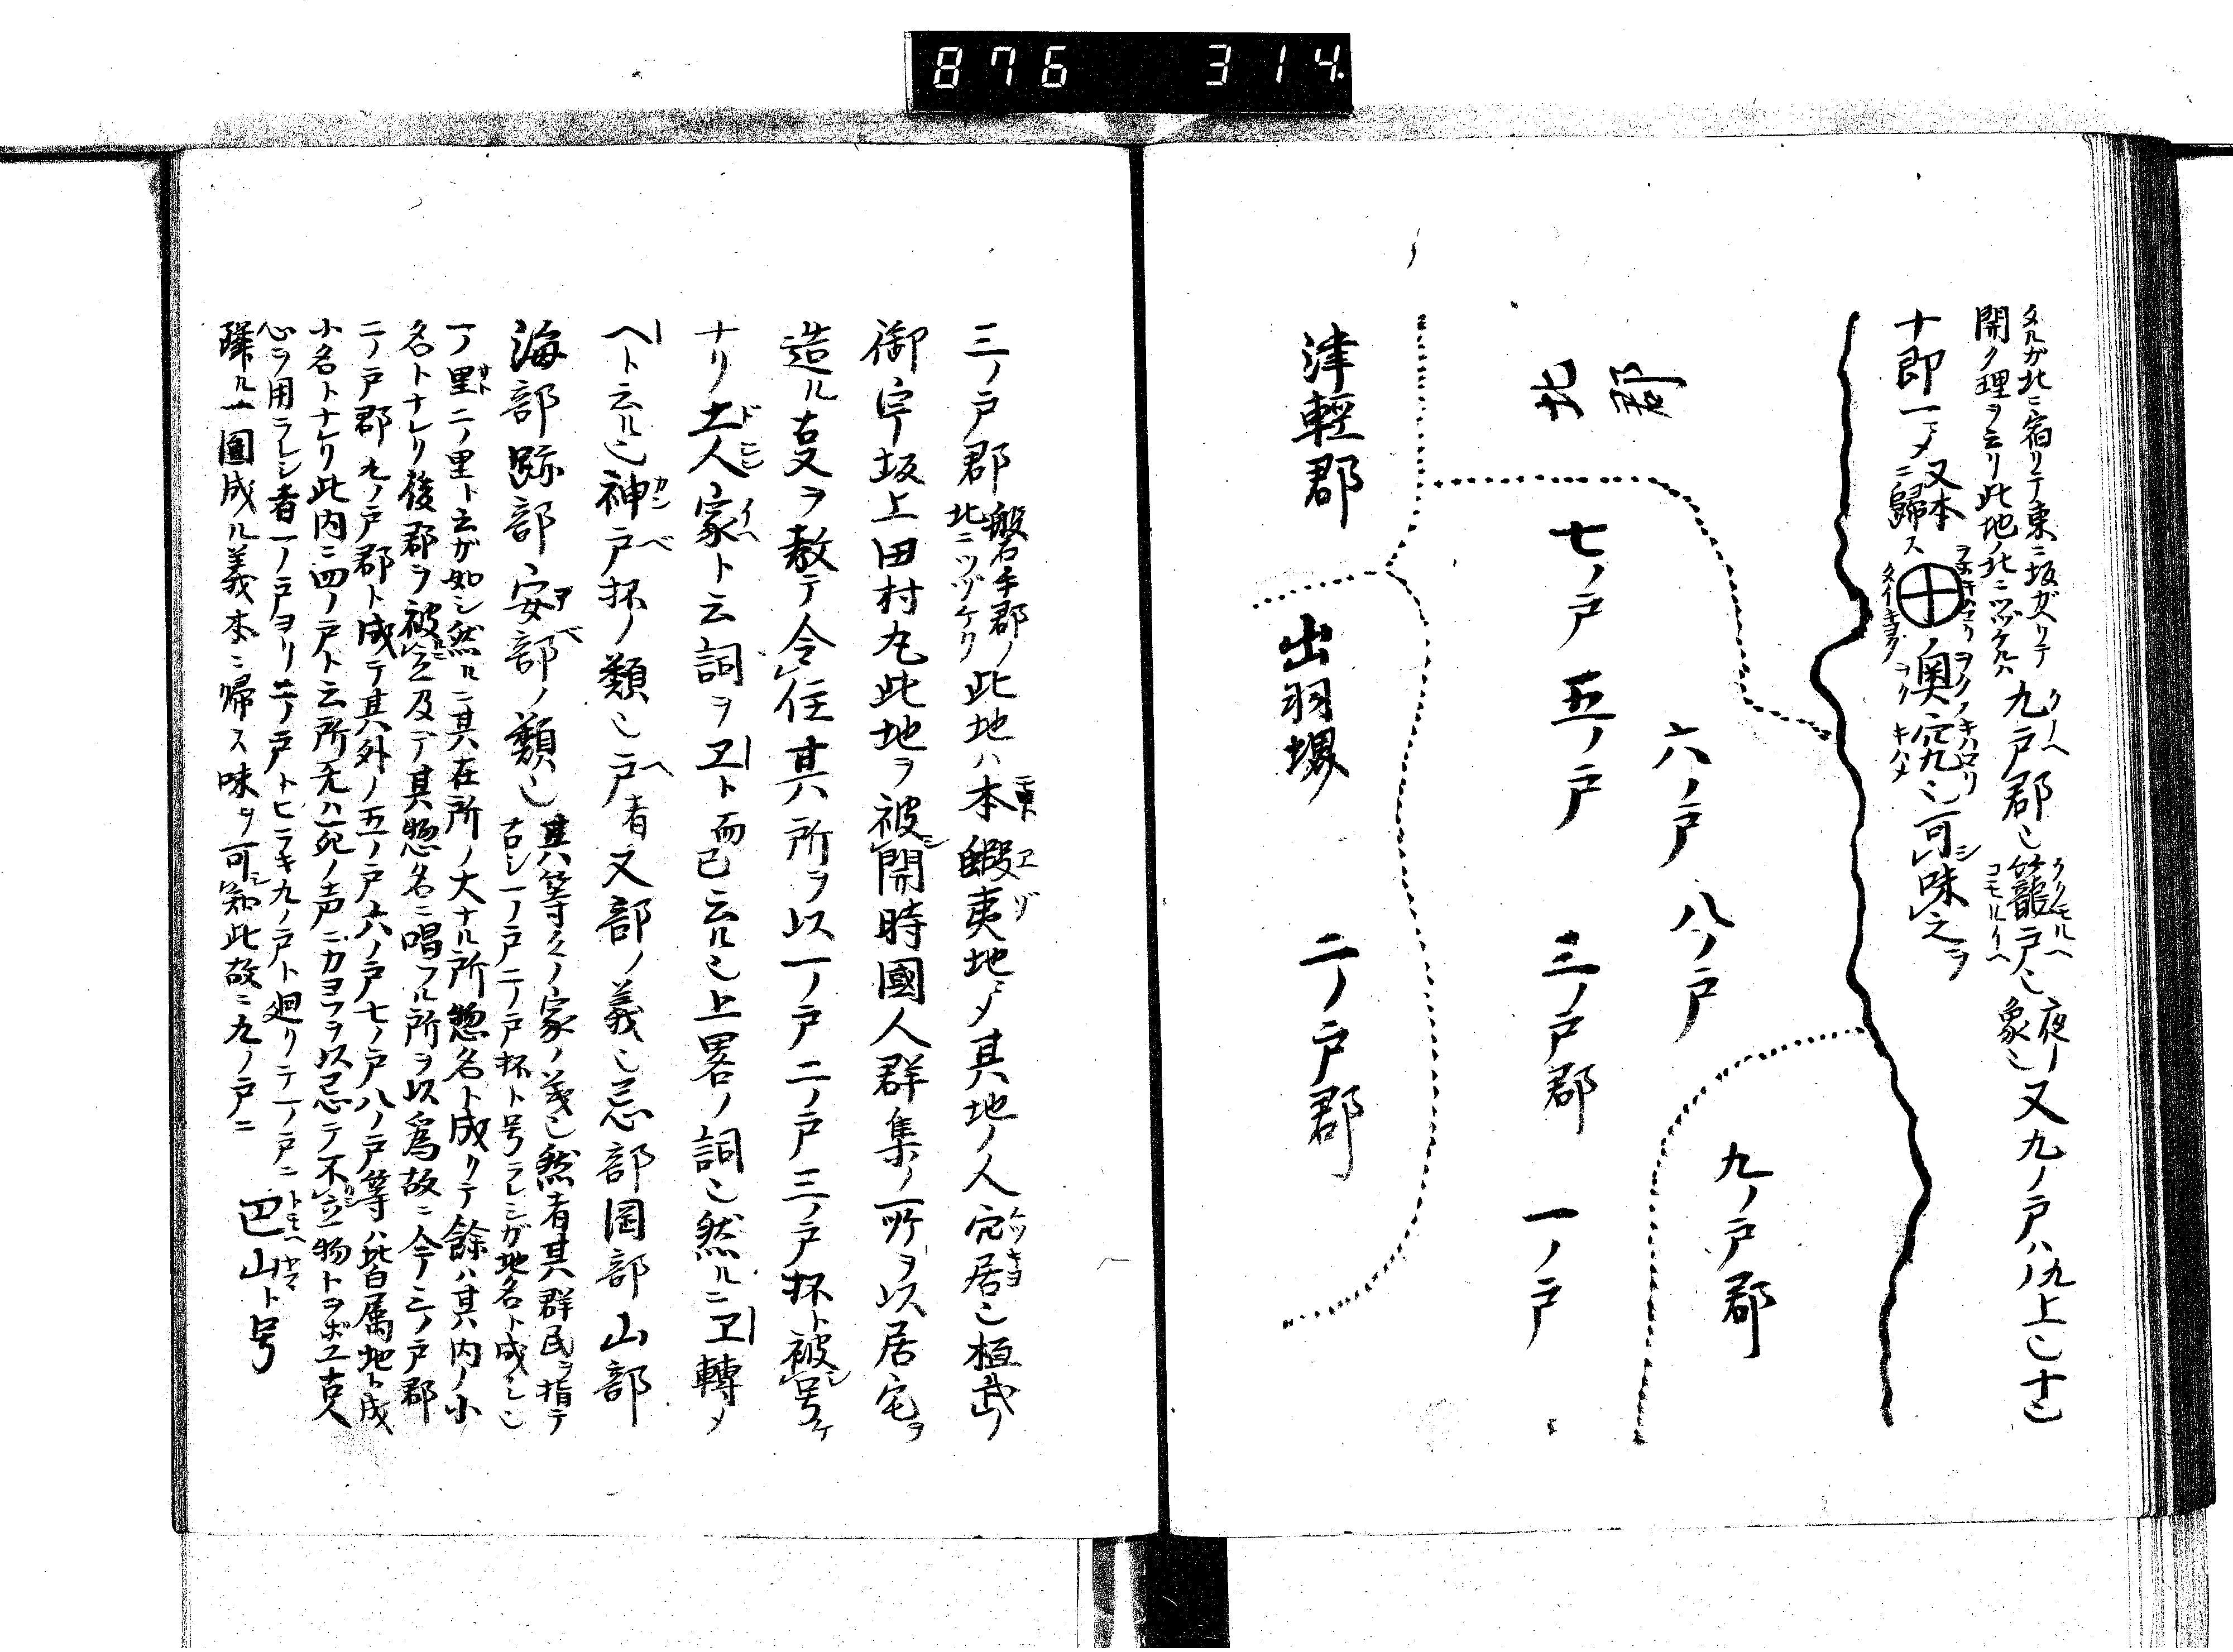 876 314
タルガ北ニ宿リテ東ニ坂ガリテ
開ク理ヲ云リ此地ノ北ニツヅケルハ
九戸郡也 籠戸也 夜ノ象也 又九ノ戸ハ九上也十也
クノヘ
クヽモルヘ
コモルノヘ
十即一〆ニ歸ス 又本 ノ奥究也可味之ヲ
北郡
七ノ戸 五ノ戸
六ノ戸 八ノ戸
三ノ戸郡 一ノ戸
九ノ戸郡
津輕郡
出羽堺
二ノ戸郡
三ノ戸郡 磐手郡ノ北ニツヅケリ 此地ハ本蝦夷地〆其地ノ人穴居也桓武ノ
御宇坂上田村丸此地ヲ被開時國人群集ノ所ヲ以居宅ヲ
造ル支ヲ教テ令住其所ヲ以一ノ戸二ノ戸三ノ戸抔ト被号ケ
ナリ土人家ト云詞ヲヱト而已云ル也上畧ノ詞也然ルニヱ轉〆
ヘト云ル也神戸抔ノ類也戸者又部ノ義也忌部岡部山部
海部跡部安部ノ類也 其等々ノ家ノ義也然者其群民ヲ指テ
古シ一ノ戸二ノ戸抔ト号ラレシガ地名ト成シ也
一ノ里二ノ里ト云ガ如シ然ルニ其在所ノ大ナル所惣名ト成リテ餘ハ其内ノ小
名トナレリ後郡ヲ被立及デ其惣名ニ唱フル所ヲ以爲故ニ今三ノ戸郡
二ノ戸郡九ノ戸郡ト成テ其外ノ五ノ戸六ノ戸七ノ戸八ノ戸等ハ皆属地ト成
小名トナレリ此内ニ四ノ戸ト云所无ハ死ノ声ニカヨフヲ以忌テ不立物トヲボユ古人
心ヲ用ラレシ者一ノ戸ヨリ二ノ戸トヒラキ九ノ戸ト廻リテ一ノ戸ニ
隣ル一圓成ル義本ニ帰ス味ヲ可知此故ニ九ノ戸ニ 巴山ト号
トモヘヤマ